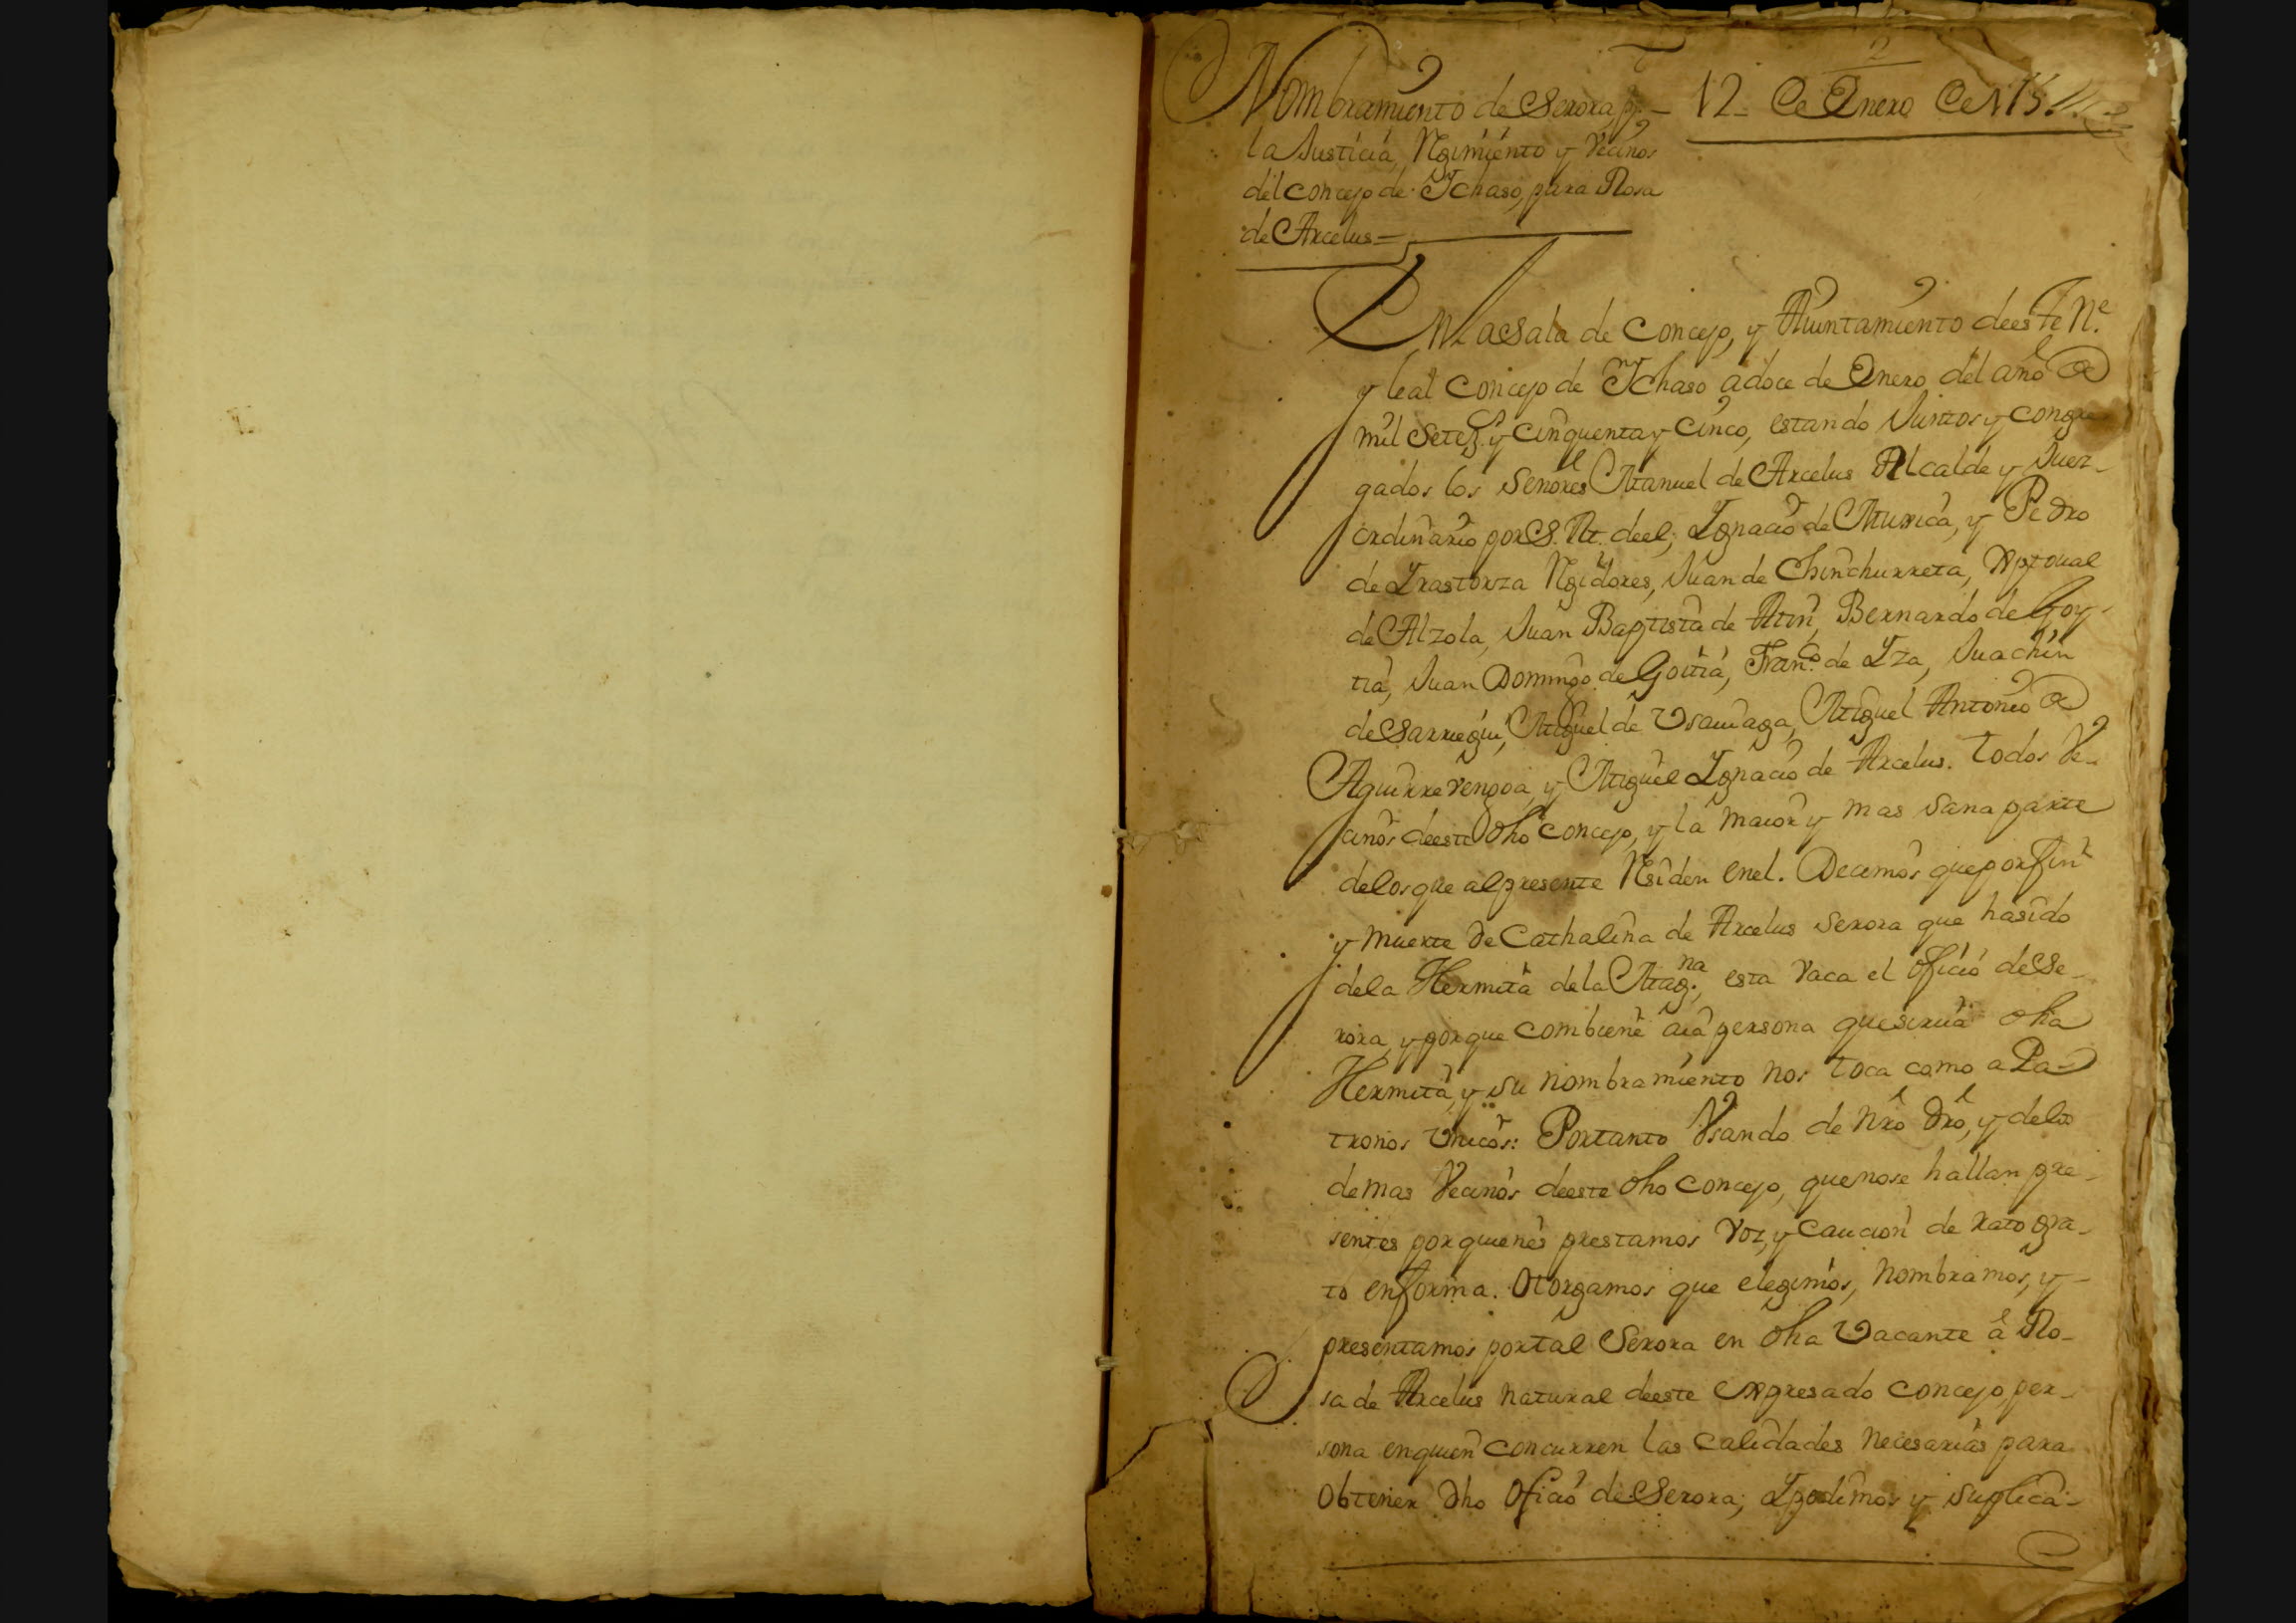 2
Nombramiento de Serora, pr
12 de Enero de 175
la Justicia, Rgimiento y Vecinos
del concejo de Ychaso, para Rosa
de Arcelus =
En la Sala de Concejo, y Aiuntamiento de este Ne.
y leal Concejo de Ychaso â doce de Enero del año de
mil Setez.s y cinquenta y Cinco, estando Juntos y congre
gados los Señores Manuel de Arcelus Alcalde y Juez
ordinario por S. M. de el; Ygnacio de Muxica, y Pedro
de Yrastorza Rgidores, Juan de Chinchurreta, Xptoual
de Alzola, Juan Baptista de Atin, Bernardo de Goy-
tia, Juan Domingo de Goitia, Fran.co de Yza, Juachin
de Sarriegui, Miguel de Vsauiaga, Miguel Antonio de
Aguirre vengoa, y Miguel Ygnacio de Arcelus. todos Ve-
cinos de este dho Concejo, y la maior y mas sana parte
de los que al presente Rsiden en el. Decimos que por fin
y muerte de Cathalina de Arcelus serora que ha sido
de la Hermita de la Mag.na, esta vaca el oficio de Se-
rora, y porque combiene aia persona que sirua dha
Hermita, y su nombramiento nos toca como a Pa-
tronos Vnicos: Por tanto Vsando de nro dro, y de los
demas Vecinos de este dho Concejo, que no se hallan pre-
sentes por quienes prestamos voz, y caucion de rato gra-
to en forma. Otorgamos que elegimos, nombramos, y
presentamos por tal Serora en dha Vacante â Ro-
sa de Arcelus natural de este expresado Concejo, per-
sona en quien concurren las calidades necesarias para
obtener dho Oficio de Serora; Y pedimos y suplica-